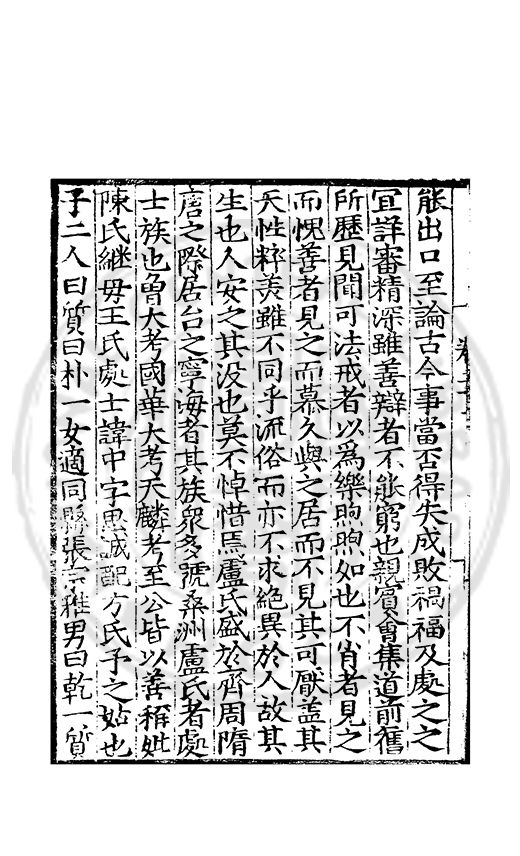 能出口至論古今事當否得失成敗禍福及處之之
宜詳審精深雖善辯者不能窮也親賓會集道前舊
所歷見聞可法戒者以爲樂煦煦如也不肖者見之
而愧善者見之而慕久與之居而不見其可厭盖其
天性粹美雖不同乎流俗而亦不求絶異於人故其
生也人安之其没也莫不悼惜焉盧氏盛於齊周隋
唐之際居台之寧海者其族衆多號桑洲盧氏者處
士族也曾大考國華大考天麟考至公皆以善稱妣
陳氏継毋王氏處士諱中字思誠配方氏予之姑也
子二人曰質曰朴一女適同縣張宗雅男曰乾一質